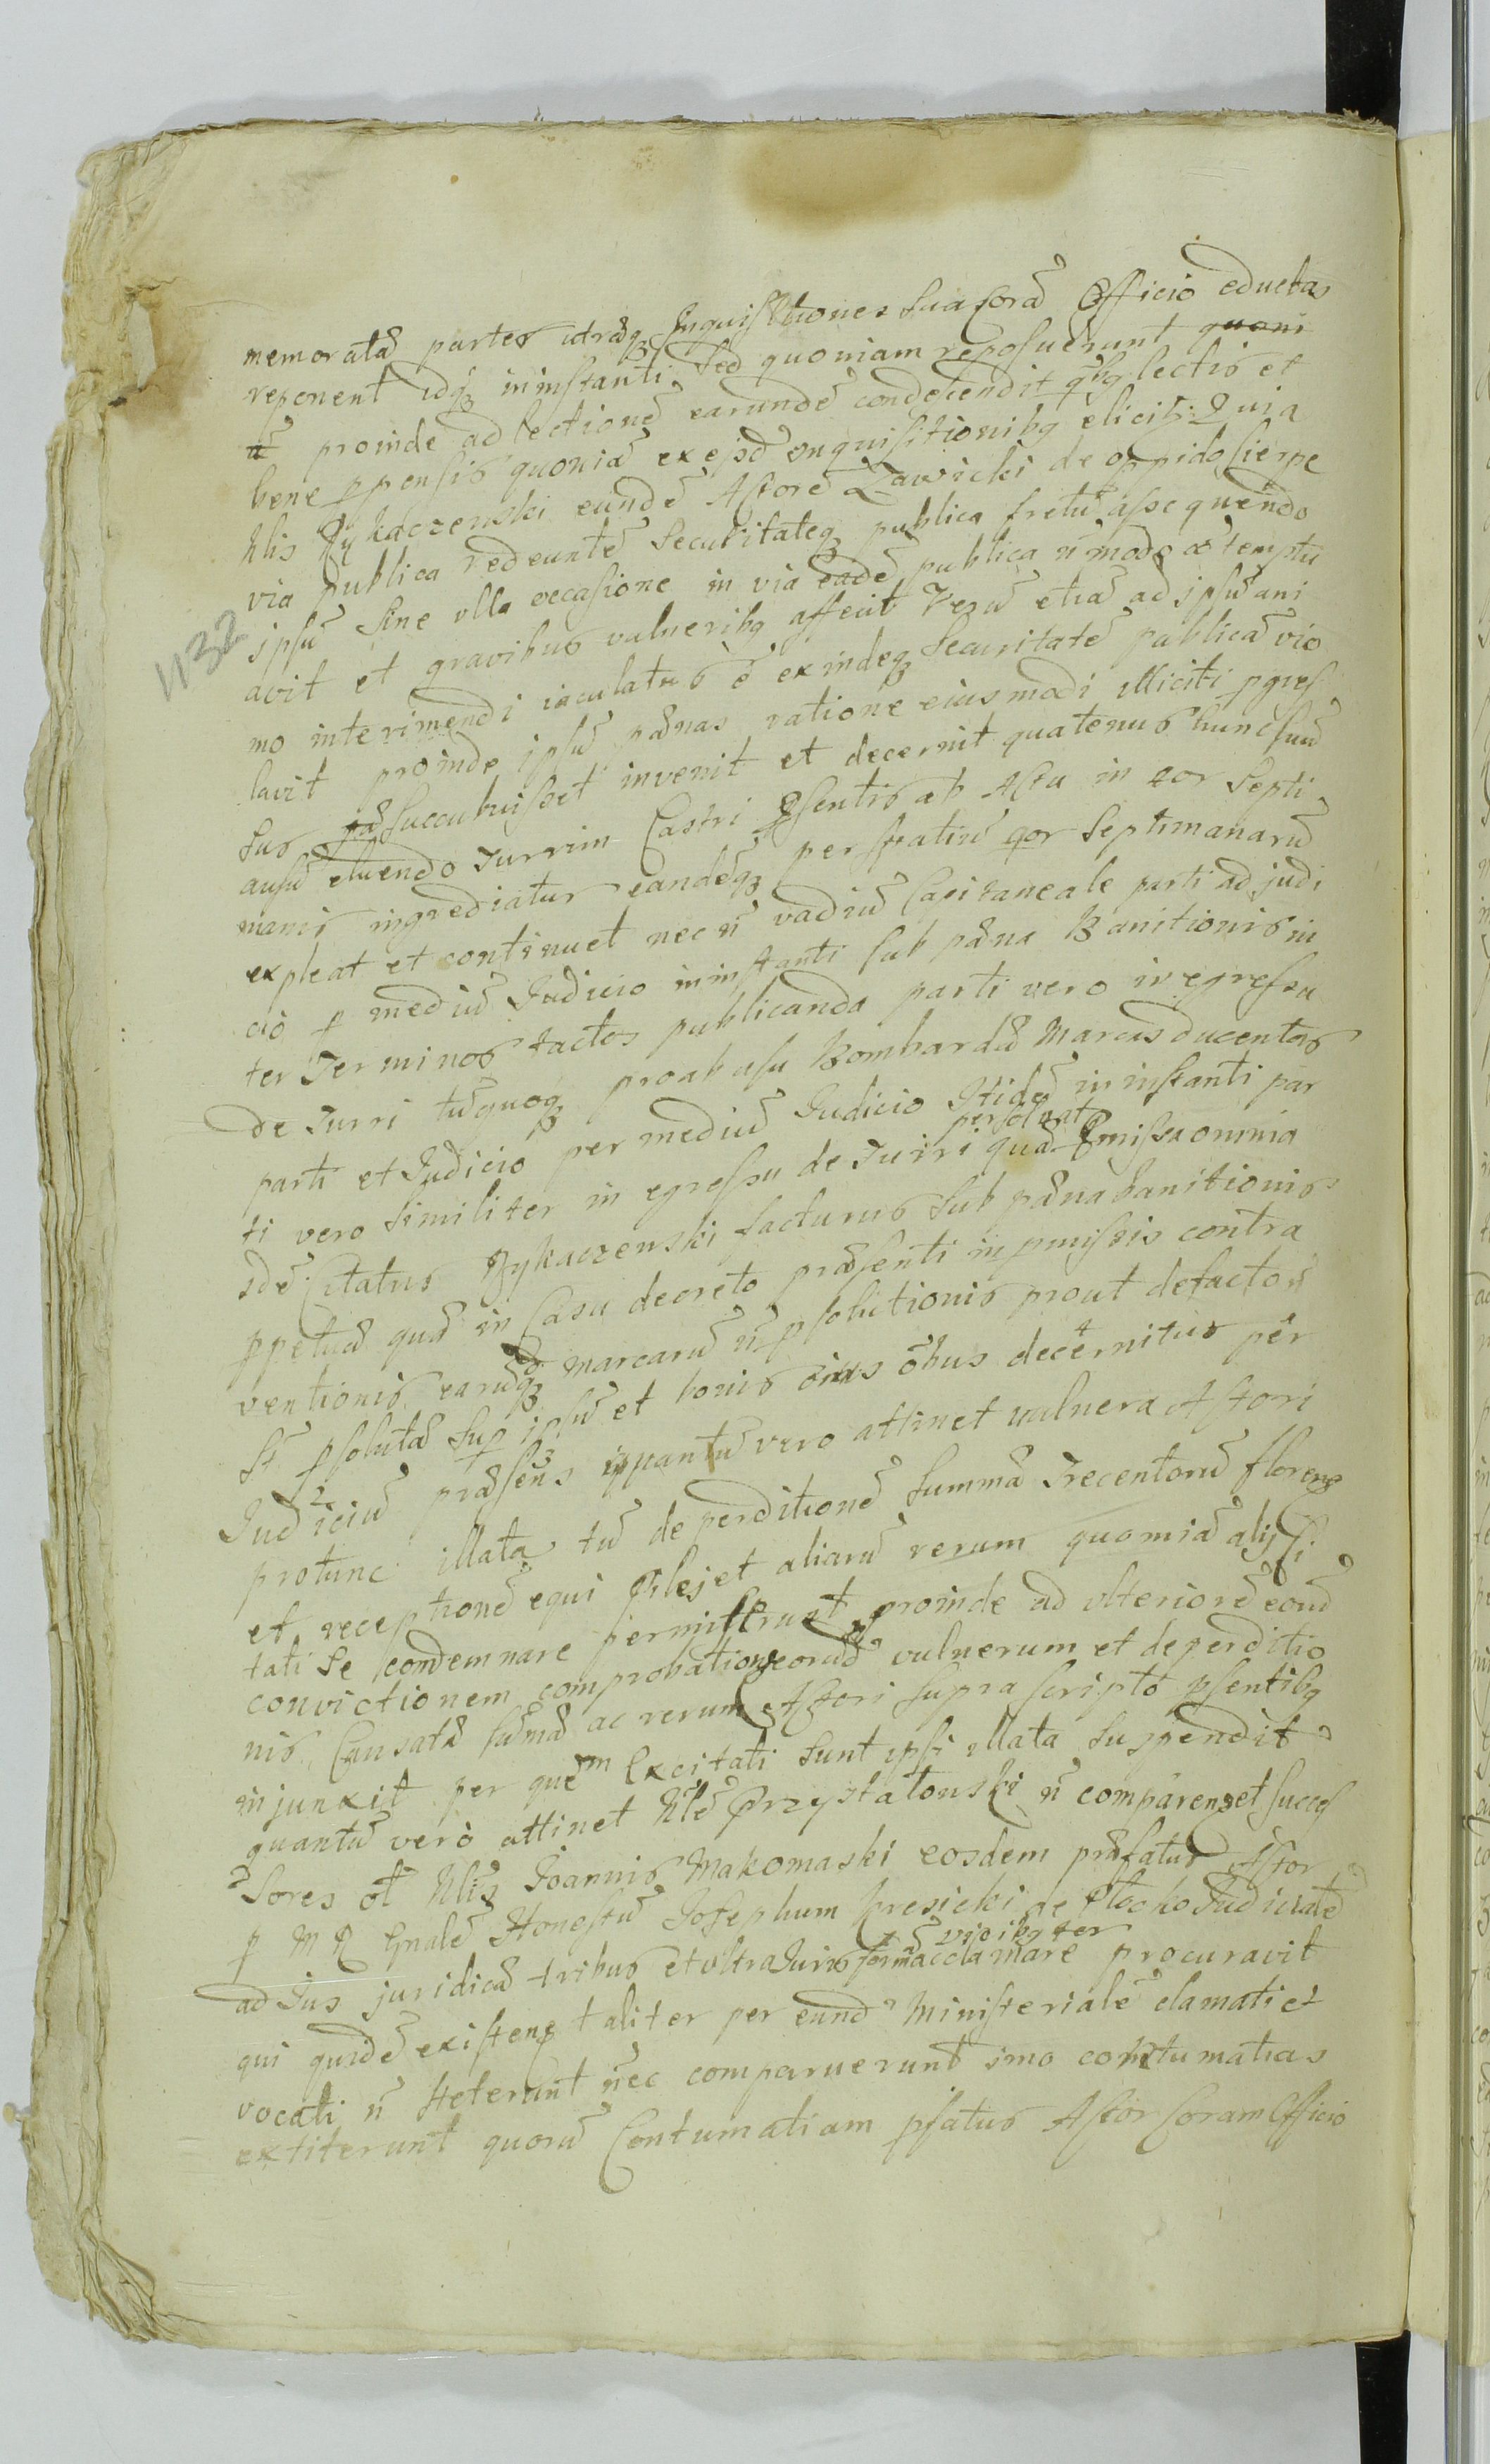 memoratæ partes utraq₃ Inquisitiones Suas Corā Officio eductas
reponent idq₃ in instanti Sed quoniam reposuerunt quoni
proinde ad lectionē earundē condescendit qbg lectis et
bene ppensis quoniā ex ejsd Inquisitionibg elicit: Quia
Nlis Rykaczewski eundē Actorē Zawicki de oppido Sierpc
via publica redeuntē Securitateq₃ publica fretū assequendo
ipsū Sine ulla occasione in via eadē publica n̄ modo
avit et gravibus vulneribg affecit Verū etiā ad ipsū ani
mo interimendi iaculatus ē exindeq₃ Securitatē publicā vio
lavit proinde ipsū pænas ratione eiusmodi illiciti pgres
Sus Succubuisset invenit et decernit quatenus hunc suū
ausū eluendo Turrim Castri psentis ab Actu in qor Septi
manis ingrediatur eandēq₃ per spatiū qor Septimanarū
expleat et continuet nec n̄ vadiū Capitaneale parti ad judi
ciō p mediū Judicio in instanti sub pæna Banitionis in
ter Terminos tactos publicanda parti vero in egressu
de Turri tū quoq₃ pro abusu Bombardæ Marcas ducentas
parti et Judicio per mediū Judicio Itidē in instanti par
ti vero similiter in egressu de Turri persolvat quæ pmissa omnia
idē Citatus Rykaczewski facturus sub pæna banitionis
ppetuæ quā in Casu decreto præsenti in pmissis contra
ventionis earūq₃ marcarū n̄ psolutionis prout de facto n̄
St psolutæ Sup ipsū et bonis eius ōbus decernitur per
Judiciū præsens quantū vero attinet vulnera Actori
protunc illata tū deperditionē Summæ Trecentorū floreng
et receptionē equi Pilei et aliarū rerum quoniā alij Ci
tati Se condemnare permiserunt proinde ad ulteriorē eorū
convictionem comprobationē eorūd vulnerum et deperditio
nis Causatæ Sūmæ ac rerum Actori suprascripto psentibg
injunxit per quem Excitati sunt ipsi illata suspendit
quantū verò attinet Nlē Przystatowski n̄ compareng et succes
Sores ol Nlis Joannis Makomaski eosdem præfatus Actor
p M R Gnalē Honestū Josephum Kresicki de Plocko Judicialē
ad Jus juridicæ tribus et ultra Juris formā vicibg ter acclamare procuravit
qui quidē existeng taliter per eund Ministerialē clamati et
vocati n̄ steterunt nec comparuerunt imo contumatias
extiterunt quorū Contumatiam pfatus Actor Coram Officio
1132